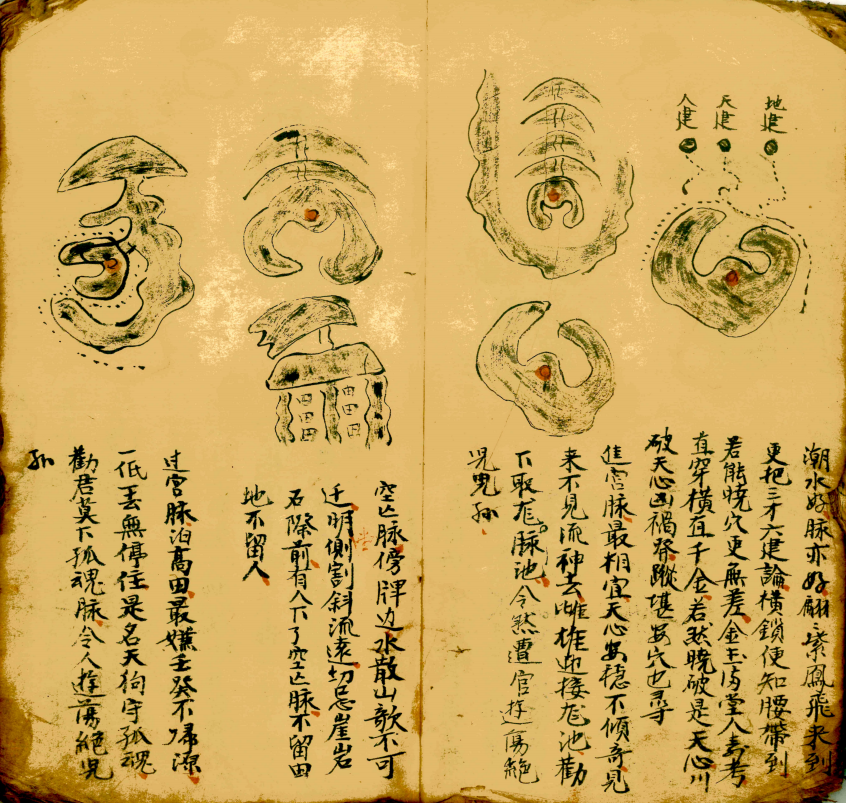 地建
天建
人建
潮水好脉亦好翩々紫鳳飛来到
更把三才六建論橫鎖便知腰帶到
若能曉穴更無差金玉滿堂人壽考
直穿橫直千金若然曉破是天心川
破天心凶禍發蹤堪安穴也尋
進宮脉最相宜天心安穩不傾奇見
来不見流神去雌雄迎接尨池勸
下取尨脉池令然遭官遊蕩絕
児鬼孫
空亡脉傍牌边水散山歌不可
迁明側割斜流遠切忌崖岩
石際前有人下了空亡脉不留田
地不留人
过宮脉泊高田最嫌壬癸不歸源
一低丢無停住是名天狗守孤魂
勸君莫下孤魂脉令人遊蕩絕児
孙